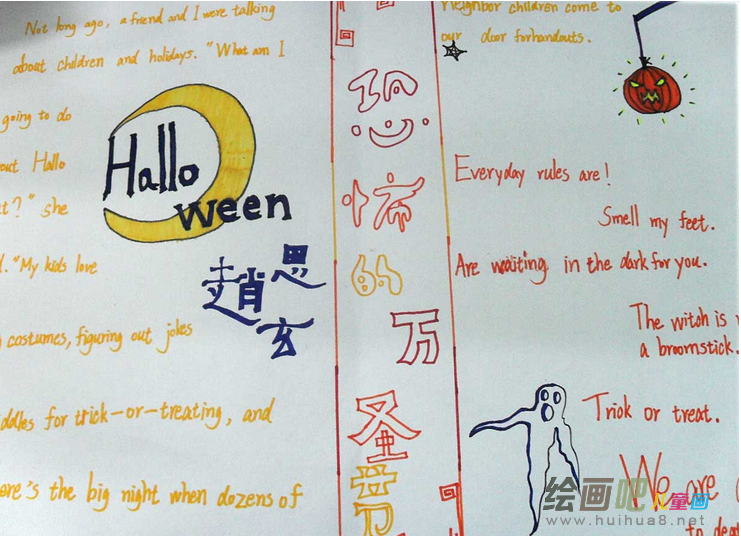 Not long ago, a friend and I were talking
about children and holidays. "What am I
going to do
out Hallo
t?" she
d. "My kids love
costumes, figuring out jokes
ddles for trick-or-treating, and
ore's the big night when dozens of
Hallo
ween
趙思玄
恐怖的万圣节
neighbor children come to
our door forhandouts.
Everyday rules are!
Smell my feet.
Are waiting in the dark for you.
The witch is
a broomstick.
Triok or treat.
We are
to dea
绘画吧 儿童画
www.huihua8.net